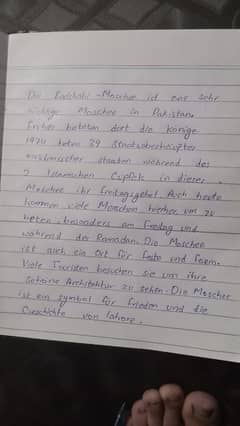 Die Badshahi-Moschee ist eine sehr
wichtige Moschee in Pakistan.
Früher beteten dort die Könige
1974 beten 39 Staatsoberhäupter
muslimischer staaten während des
2 Islamischen Gipfels in dieser
Moschee ihr freitagsgebet. Auch heute
kommen viele Menschen hierher, um zu
beten. besonders am Freitag und
während der Ramadan. Die Moschee
ist auch ein Ort für Feste und
Viele Touristen besuchen sie um ihre
schöne Architektur zu sehen. Die Moschee
ist ein symbol für frieden und die
Geschichte von lahore.